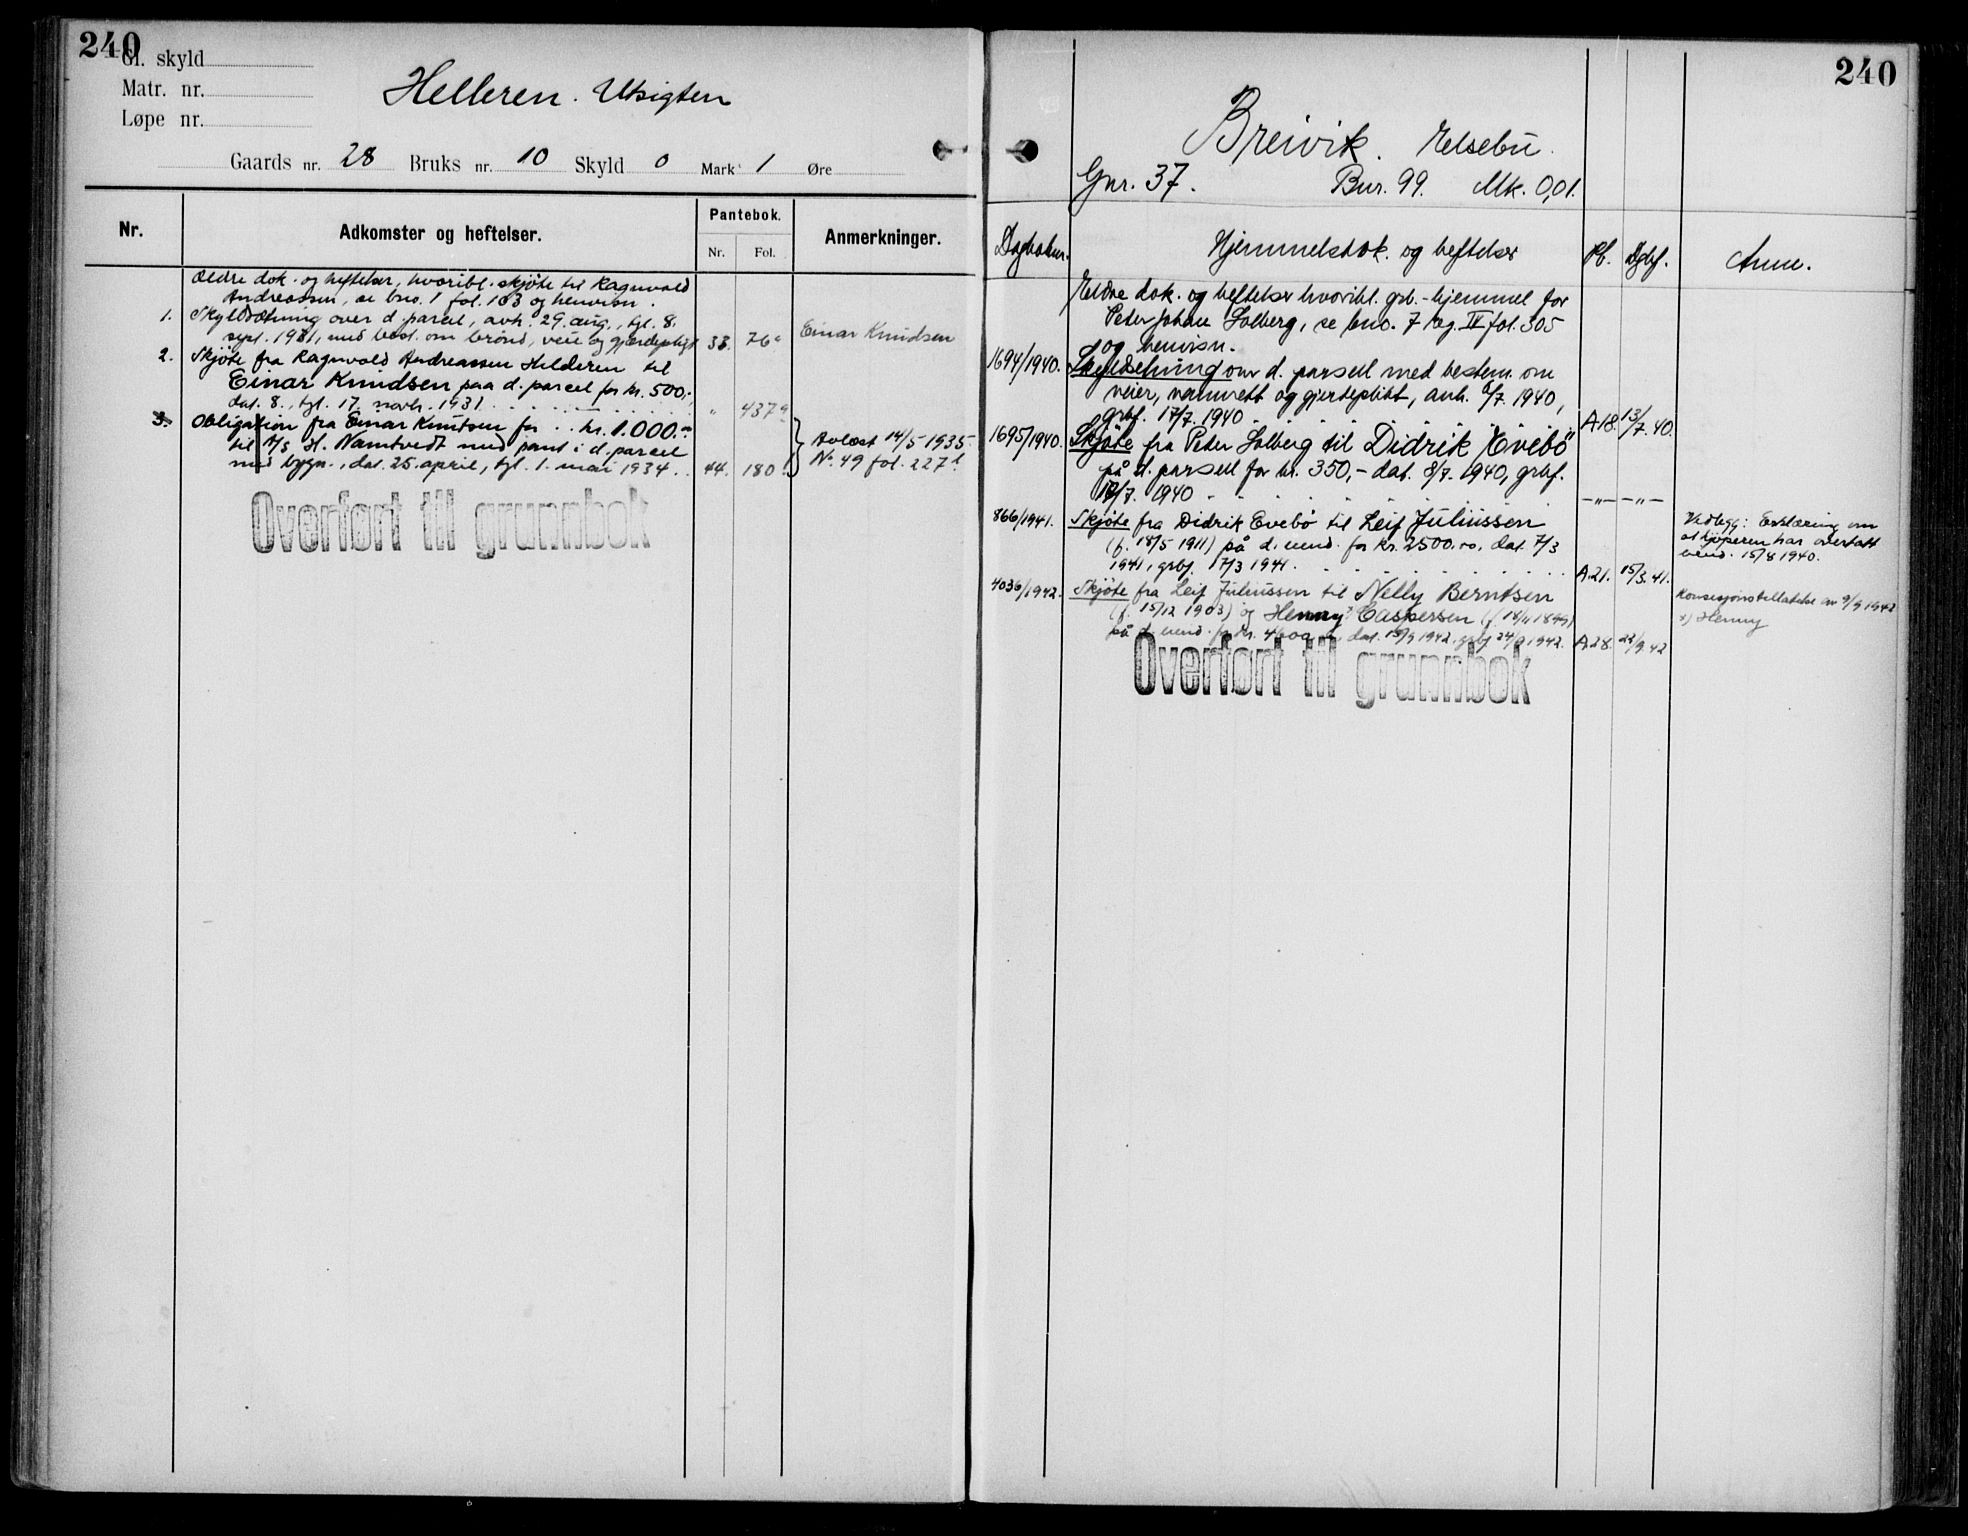 240
Gl. skyld
Matr. nr.
Løpe nr.
Helleren. Utsigten
Gaards nr. 28 Bruks nr. 10 Skyld 0 Mark 1 Øre
Nr. Adkomster og heftelser. Pantebok. Nr. Fol. Anmerkninger.
Ældre dok. og heftelser, hvoribl. skjøte til Ragnvald
Andreassen, se bno. 1 fol. 163 og henvisn.
1. Skyldsætning over d. parcel, avh. 29. aug., tgl. 8.
sept. 1931, med best. om brønd, veie og gjærdepligt 33. 76 Einar Knudsen
2. Skjøte fra Ragnvald Andreassen Helderen til
Einar Knudsen paa d. parcel for kr. 500,-
dat. 8., tgl. 17. novbr. 1931 . . . " 437
3. Obligation fra Einar Knutsen for . . kr. 1.000.-
til A/S H. Namtvedt med pant i d. parcel
med bygn., dat. 25. april, tgl. 1. mai 1934 . . 44. 180
Avlæst 14/5 1935.
No. 49 fol. 227
Overført til grunnbok
240
Breivik. Elsebu.
Gnr. 37. Bnr. 99. Mk. 0,01.
Dagboknr. Hjemmelsdok. og heftelser Pb. Dgbf. Anm.
Eldre dok. og heftelser hvoribl. grb.-hjemmel for
Peter Johan Solberg, se bno. 7 reg. IV fol. 305
og henvisn.
1694/1940. Skyldselning over d. parsell med bestem. om
veier, vannrett og gjerdeplikt, avh. 6/7. 1940,
grbf. 17/7. 1940 . . . A 18. 13/7. 40.
1695/1940. Skjøte fra Peter Solberg til Didrik Evebö
på d. parsell for kr. 350,- dat. 8/7. 1940, grbf.
/7. 1940 . . . —„— —„—
866/1941. Skjöte fra Didrik Evebö til Leif Juliussen
(f. 18/5 1911) på d. eiend. for kr. 2500.00, dat. 7/3
1941, grbf. 17/3 1941. . . . A.21. 15/3.41.
Vedlegg: Erklæring om
at kjöperen har overtatt
eiend. 15/8 1940.
4036/1942. Skjöte fra Leif Juliussen til Nelly Berntsen
(f. 15/12 1903) og Henny x) Caspersen (f. 1899)
på d. eiend. for kr. dat. 15/9 1942, grbf. 24/9 1942. A.28. 22/9.42
Konsesjonstillatelse av 9/9 1942
x) Henny
Overført til grunnbok